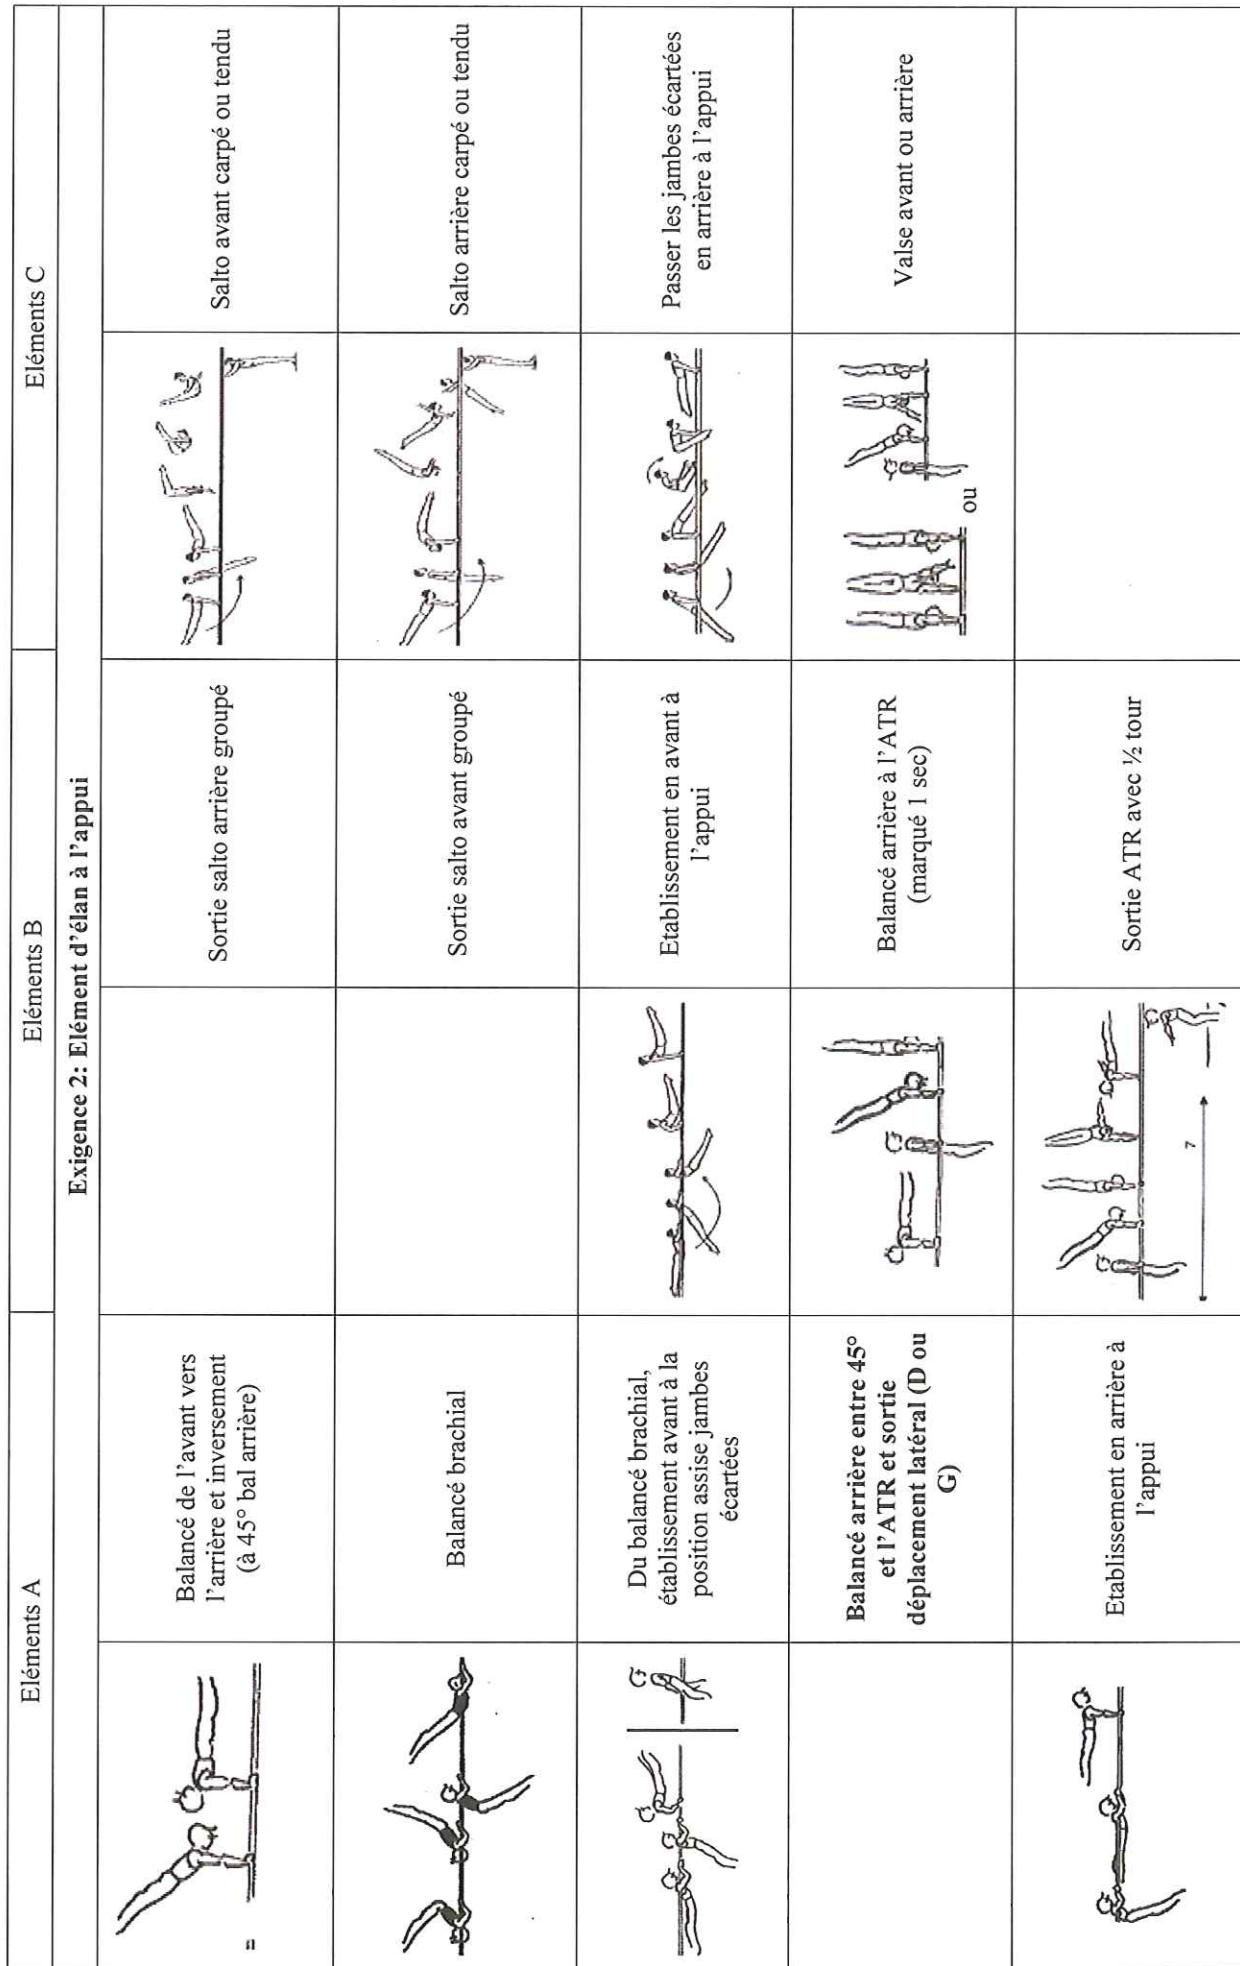 Eléments A
Eléments B
Eléments C
Exigence 2: Elément d'élan à l'appui
Balancé de l'avant vers
l'arrière et inversement
(à 45° bal arrière)
Sortie salto arrière groupé
Salto avant carpé ou tendu
Balancé brachial
Sortie salto avant groupé
Salto arrière carpé ou tendu
Du balancé brachial,
établissement avant à la
position assise jambes
écartées
Etablissement en avant à
l'appui
Passer les jambes écartées
en arrière à l'appui
Balancé arrière entre 45°
et l'ATR et sortie
déplacement latéral (D ou
G)
Balancé arrière à l'ATR
(marqué 1 sec)
ou
Valse avant ou arrière
Etablissement en arrière à
l'appui
Sortie ATR avec ½ tour